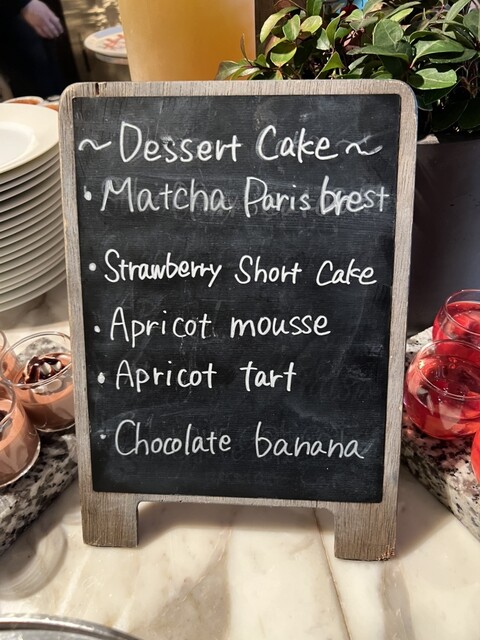 ~ Dessert Cake ~
• Matcha Paris brest
• Strawberry Short Cake
• Apricot mousse
• Apricot tart
• Chocolate banana